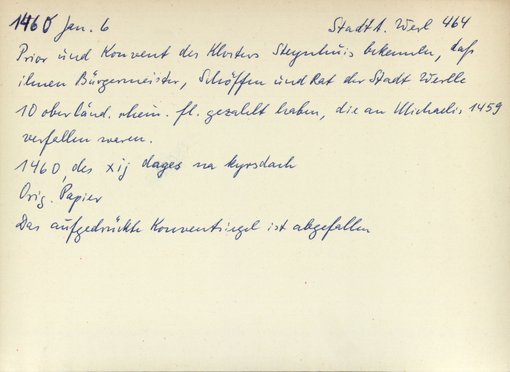 1460 Jan. 6 Stadt A. Werl 464
Prior und Konvent des Klosters Steynhuis bekennen, daß
ihnen Bürgermeister, Schöffen und Rat der Stadt Werlle
10 oberländ. rhein. fl. gezahlt haben, die an Michaelis 1459
verfallen waren.
1460, des xij dages na kyrsdach
Orig. Papier
Das aufgedrückte Konventsiegel ist abgefallen